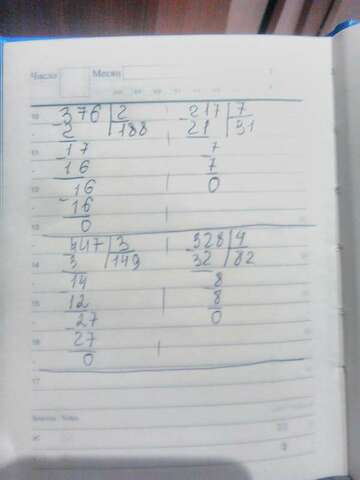 Число Месяц
376 | 2
2 | 188
17
16
16
16
0
217 | 7
21 | 31
7
7
0
447 | 3
3 | 149
14
12
27
27
0
328 | 4
32 | 82
8
8
0
10
11
12
13
14
15
16
17